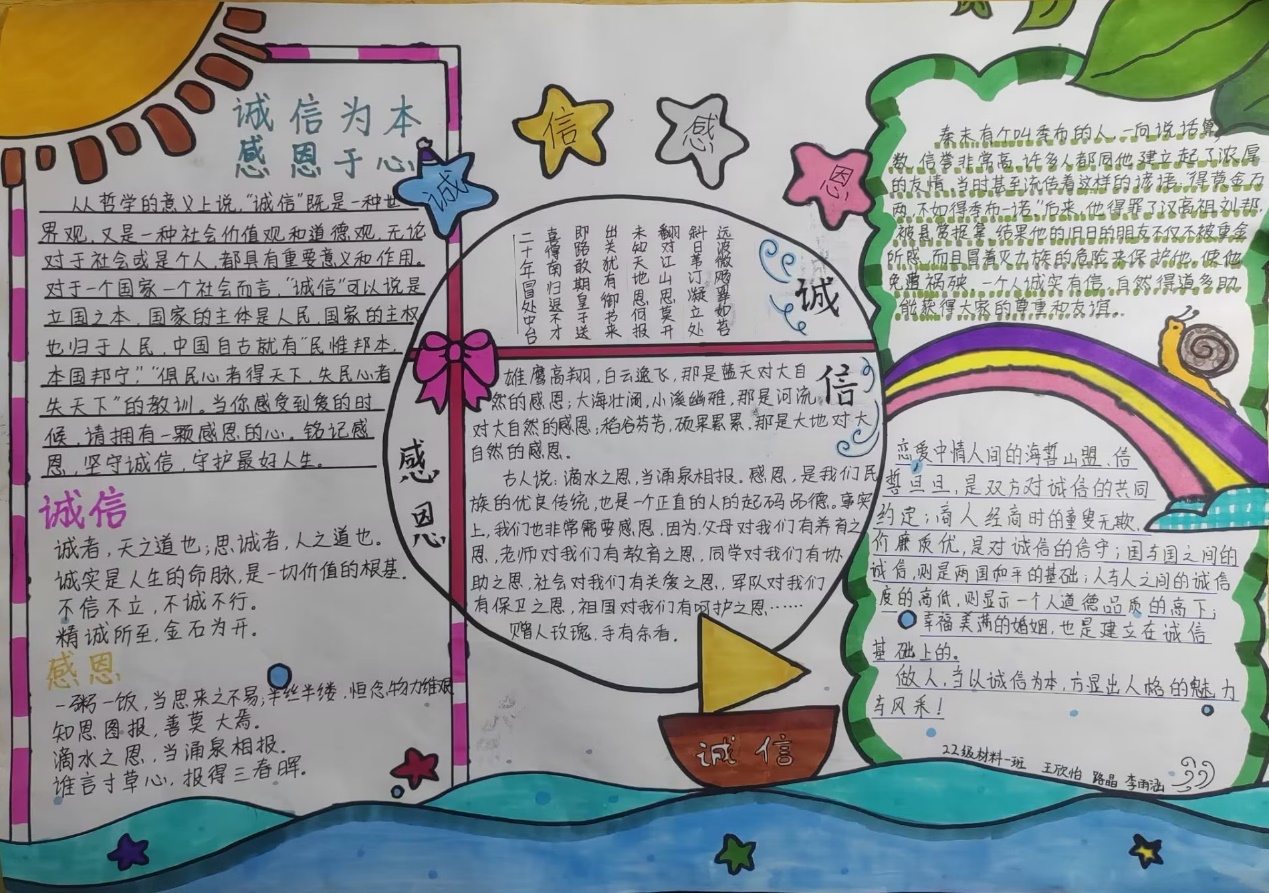 诚信为本
感恩于心
从哲学的意义上说,"诚信"既是一种世
界观,又是一种社会价值观和道德观,无论
对于社会或是个人,都具有重要意义和作用。
对于一个国家一个社会而言,"诚信"可以说是
立国之本,国家的主体是人民,国家的主权
也归于人民,中国自古就有"民惟邦本,
本国邦宁""俱民心者得天下,失民心者
失天下"的教训。当你感受到爱的时
候,请拥有一颗感恩的心。铭记感
恩,坚守诚信,守护最好人生。
诚信
诚者,天之道也;思诚者,人之道也。
诚实是人生的命脉,是一切价值的根基。
不信不立,不诚不行。
精诚所至,金石为开。
感恩
一粥一饭,当思来之不易;半丝半缕,恒念物力维艰
知恩图报,善莫大焉。
滴水之恩,当涌泉相报。
谁言寸草心,报得三春晖。
诚
信
感
恩
远波微飏翠如苔
斜日苇汀凝立处
翻对江山思莫开
未知天地恩何报
出关犹有御书来
即路敢期皇子送
喜得南归退不才
二十年冒处中台
诚
信
感
恩
雄鹰高翔,白云逸飞,那是蓝天对大自
然的感恩;大海壮阔,小溪幽雅,那是河流
对大自然的感恩;稻谷芬芳,硕果累累,那是大地对大
自然的感恩。
古人说:滴水之恩,当涌泉相报。感恩,是我们民
族的优良传统,也是一个正直的人的起码品德。事实
上,我们也非常需要感恩,因为父母对我们有养育之
恩,老师对我们有教育之恩,同学对我们有协
助之恩,社会对我们有关爱之恩,军队对我们
有保卫之恩,祖国对我们有呵护之恩……
赠人玫瑰,手有余香。
诚信
秦末有个叫季布的人,一向说话算
数,信誉非常高,许多人都同他建立起了浓厚
的友情,当时甚至流传着这样的谚语:"得黄金万
两,不如得季布一诺"后来,他得罪了汉高祖刘邦
被悬赏捉拿,结果他的旧日的朋友不仅不被重金
所惑,而且冒着灭九族的危险来保护他,使他
免遭祸殃,一个人诚实有信,自然得道多助
能获得大家的尊重和友谊。
恋爱中情人间的海誓山盟,信
誓旦旦,是双方对诚信的共同
约定;商人经商时的童叟无欺,
价廉质优,是对诚信的信守;国与国之间的
诚信,则是两国和平的基础;人与人之间的诚信
度的高低,则显示一个人道德品质的高下;
幸福美满的婚姻,也是建立在诚信
基础上的。
做人,当以诚信为本,方显出人格的魅力
与风采!
22级材料一班 王欣怡 路晶 李雨涵